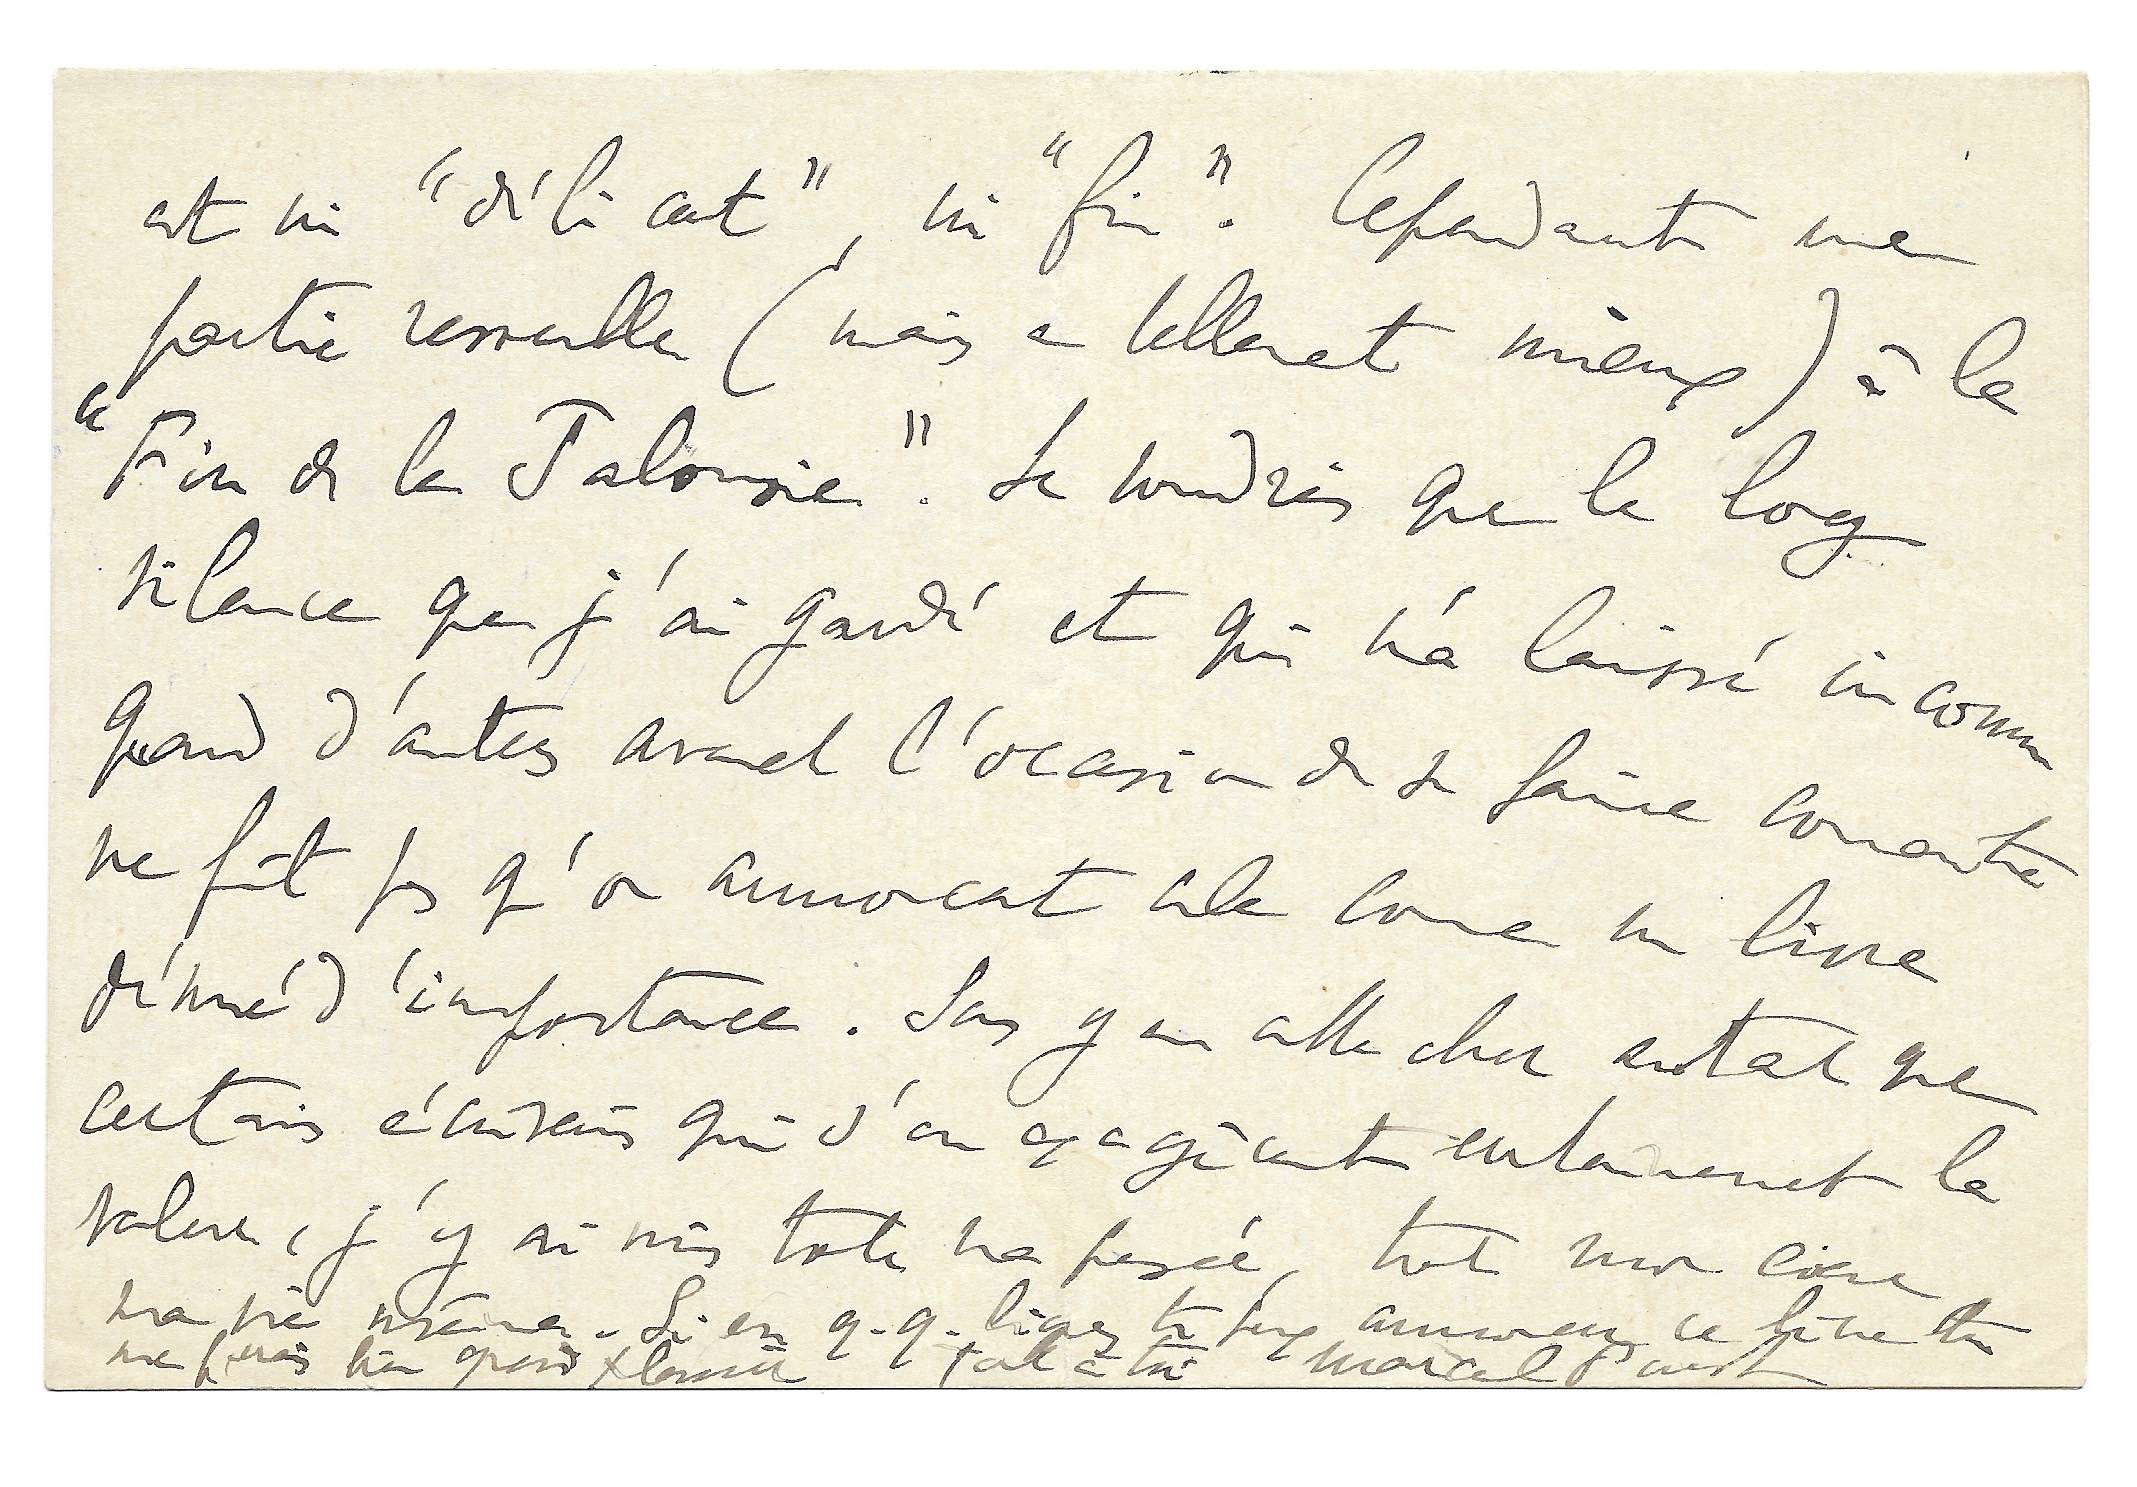 est ni "délicat", ni "fin". Cependant une
partie ressemble (mais en tellement mieux) à la
"Fin de la Jalousie". Je voudrais que le long
silence que j'ai gardé et qui m'a laissé inconnu
quand d'autres avaient l'occasion de se faire connaître
ne fît pas qu'on annonçât cela comme un livre
dénué d'importance. Sans y en attacher autant que
certains écrivains qui s'en exagèrent certainement la
valeur, j'y ai mis toute ma pensée, tout mon cœur
ma vie même. Si en q.q. lignes tu peux annoncer ce livre tu
me ferais bien grand plaisir Tout à toi Marcel Proust